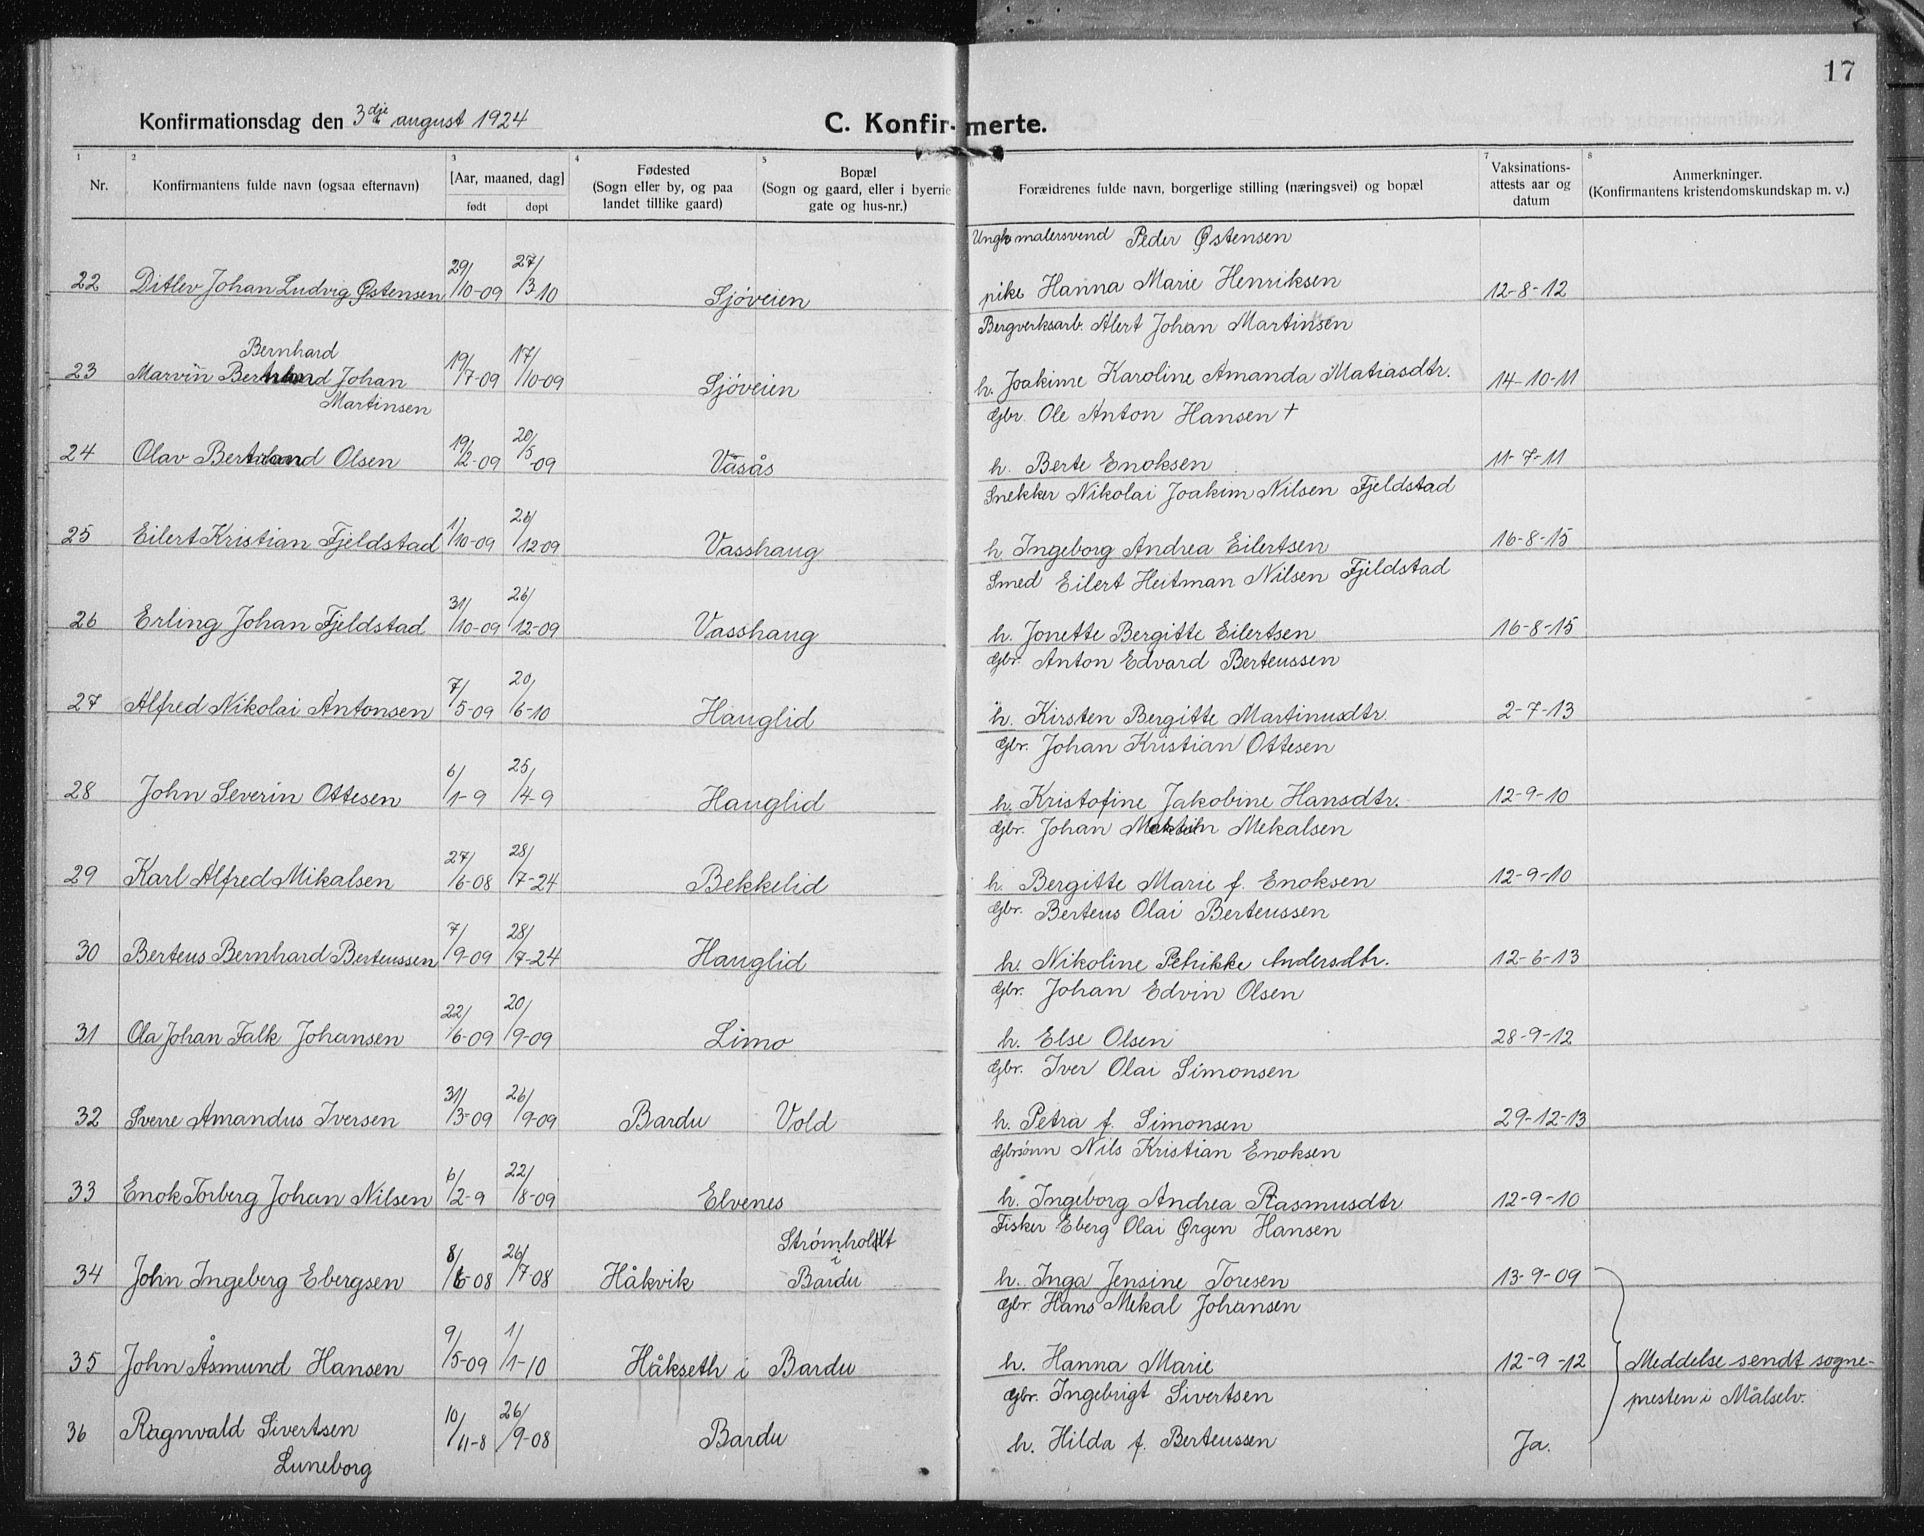 17
Konfirmationsdag den 3dje august 1924
C. Konfirmerte.
1 2 3 4 5 7 8
Nr. Konfirmantens fulde navn (ogsaa efternavn) [Aar, maaned, dag] født døpt Fødested (Sogn eller by, og paa landet tillike gaard) Bopæl (Sogn og gaard, eller i byerne gate og hus-nr.) Foræidrenes fulde navn, borgerlige stilling (næringsvei) og bopæl Vaksinations-attests aar og datum Anmerkninger. (Konfirmantens kristendomskundskap m. v.)
Ungk. malersvend Peder Østensen
22 Ditlev Johan Ludvig Østensen 29/10-09 27/3 10 Sjøveien pike Hanna Marie Henriksen 12-8-12
Bergverksarb. Alert Johan Martinsen
Bernhard
23 Marvin Johan 19/7-09 17/10-09 Sjøveien h. Joakime Karoline Amanda Matiasdtr. 14-10-11
Martinsen
Gbr. Ole Anton Hansen +
24 Olav Olsen 19/2-09 20/5-09 Våsås h. Berte Enoksen 11-7-11
Snekker Nikolai Joakim Nilsen Fjeldstad
25 Eilert Kristian Fjeldstad 1/10-09 26/12-09 Vasshaug h Ingeborg Andrea Eilertsen 16-8-15
Smed Eilert Heitman Nilsen Fjeldstad
26 Erling Johan Fjeldstad 31/10-09 26/12-09 Vasshaug h. Jonette Bergitte Eilertsen 16-8-15
Gbr. Anton Edvard Berteussen
27 Alfred Nikolai Antonsen 7/5-09 20/6-10 Hauglid h. Kirsten Bergitte Martinusdtr. 2-7-13
Gbr. Johan Kristian Ottesen
28 John Severin Ottesen 6/1-9 25/4-9 Hauglid h. Kristofine Jakobine Hansdtr. 12-9-10
Gbr. Johan Mekalsen
29 Karl Alfred Mikalsen 27/6-08 28/7-24 Bekkelid h. Bergitte Marie f. Enoksen 12-9-10
Gbr. Berteus Olai Berteussen
30 Berteus Bernhard Berteussen 7/9-09 28/7-24 Hauglid h. Nikoline Petrikke Andersdtr. 12-6-13
Gbr. Johan Edvin Olsen
31 Ola Johan Falk Johansen 22/6-09 20/9-09 Limo h. Else Olsen 28-9-12
Gbr. Iver Olai Simonsen
32 Sverre Amandus Iversen 31/3-09 26/9-09 Bardu Vold h. Petra f. Simonsen 29-12-13
Gbrsønn Nils Kristian Enoksen
33 Enok Torberg Johan Nilsen 6/2-9 22/8-09 Elvenes h. Ingeborg Andrea Rasmusdtr 12-9-10
Fisker Eberg Olai Ørgen Hansen
Strømholdt i
34 John Ingeberg Ebergsen 8/6-08 26/7-08 Håkvik Bardu h. Inga Jensine Toresen 13-9-09
Gbr. Hans Mekal Johansen
35 John Åsmund Hansen 9/5-09 1/1-10 Håkseth i Bardu h. Hanna Marie 12-9-12 Meddelse sendt sogne-
Gbr. Ingebrigt Sivertsen presten i Målselv.
36 Ragnvald Sivertsen 10/11-8 26/9-08 Bardu h. Hilda f. Berteussen Ja.
Luneborg